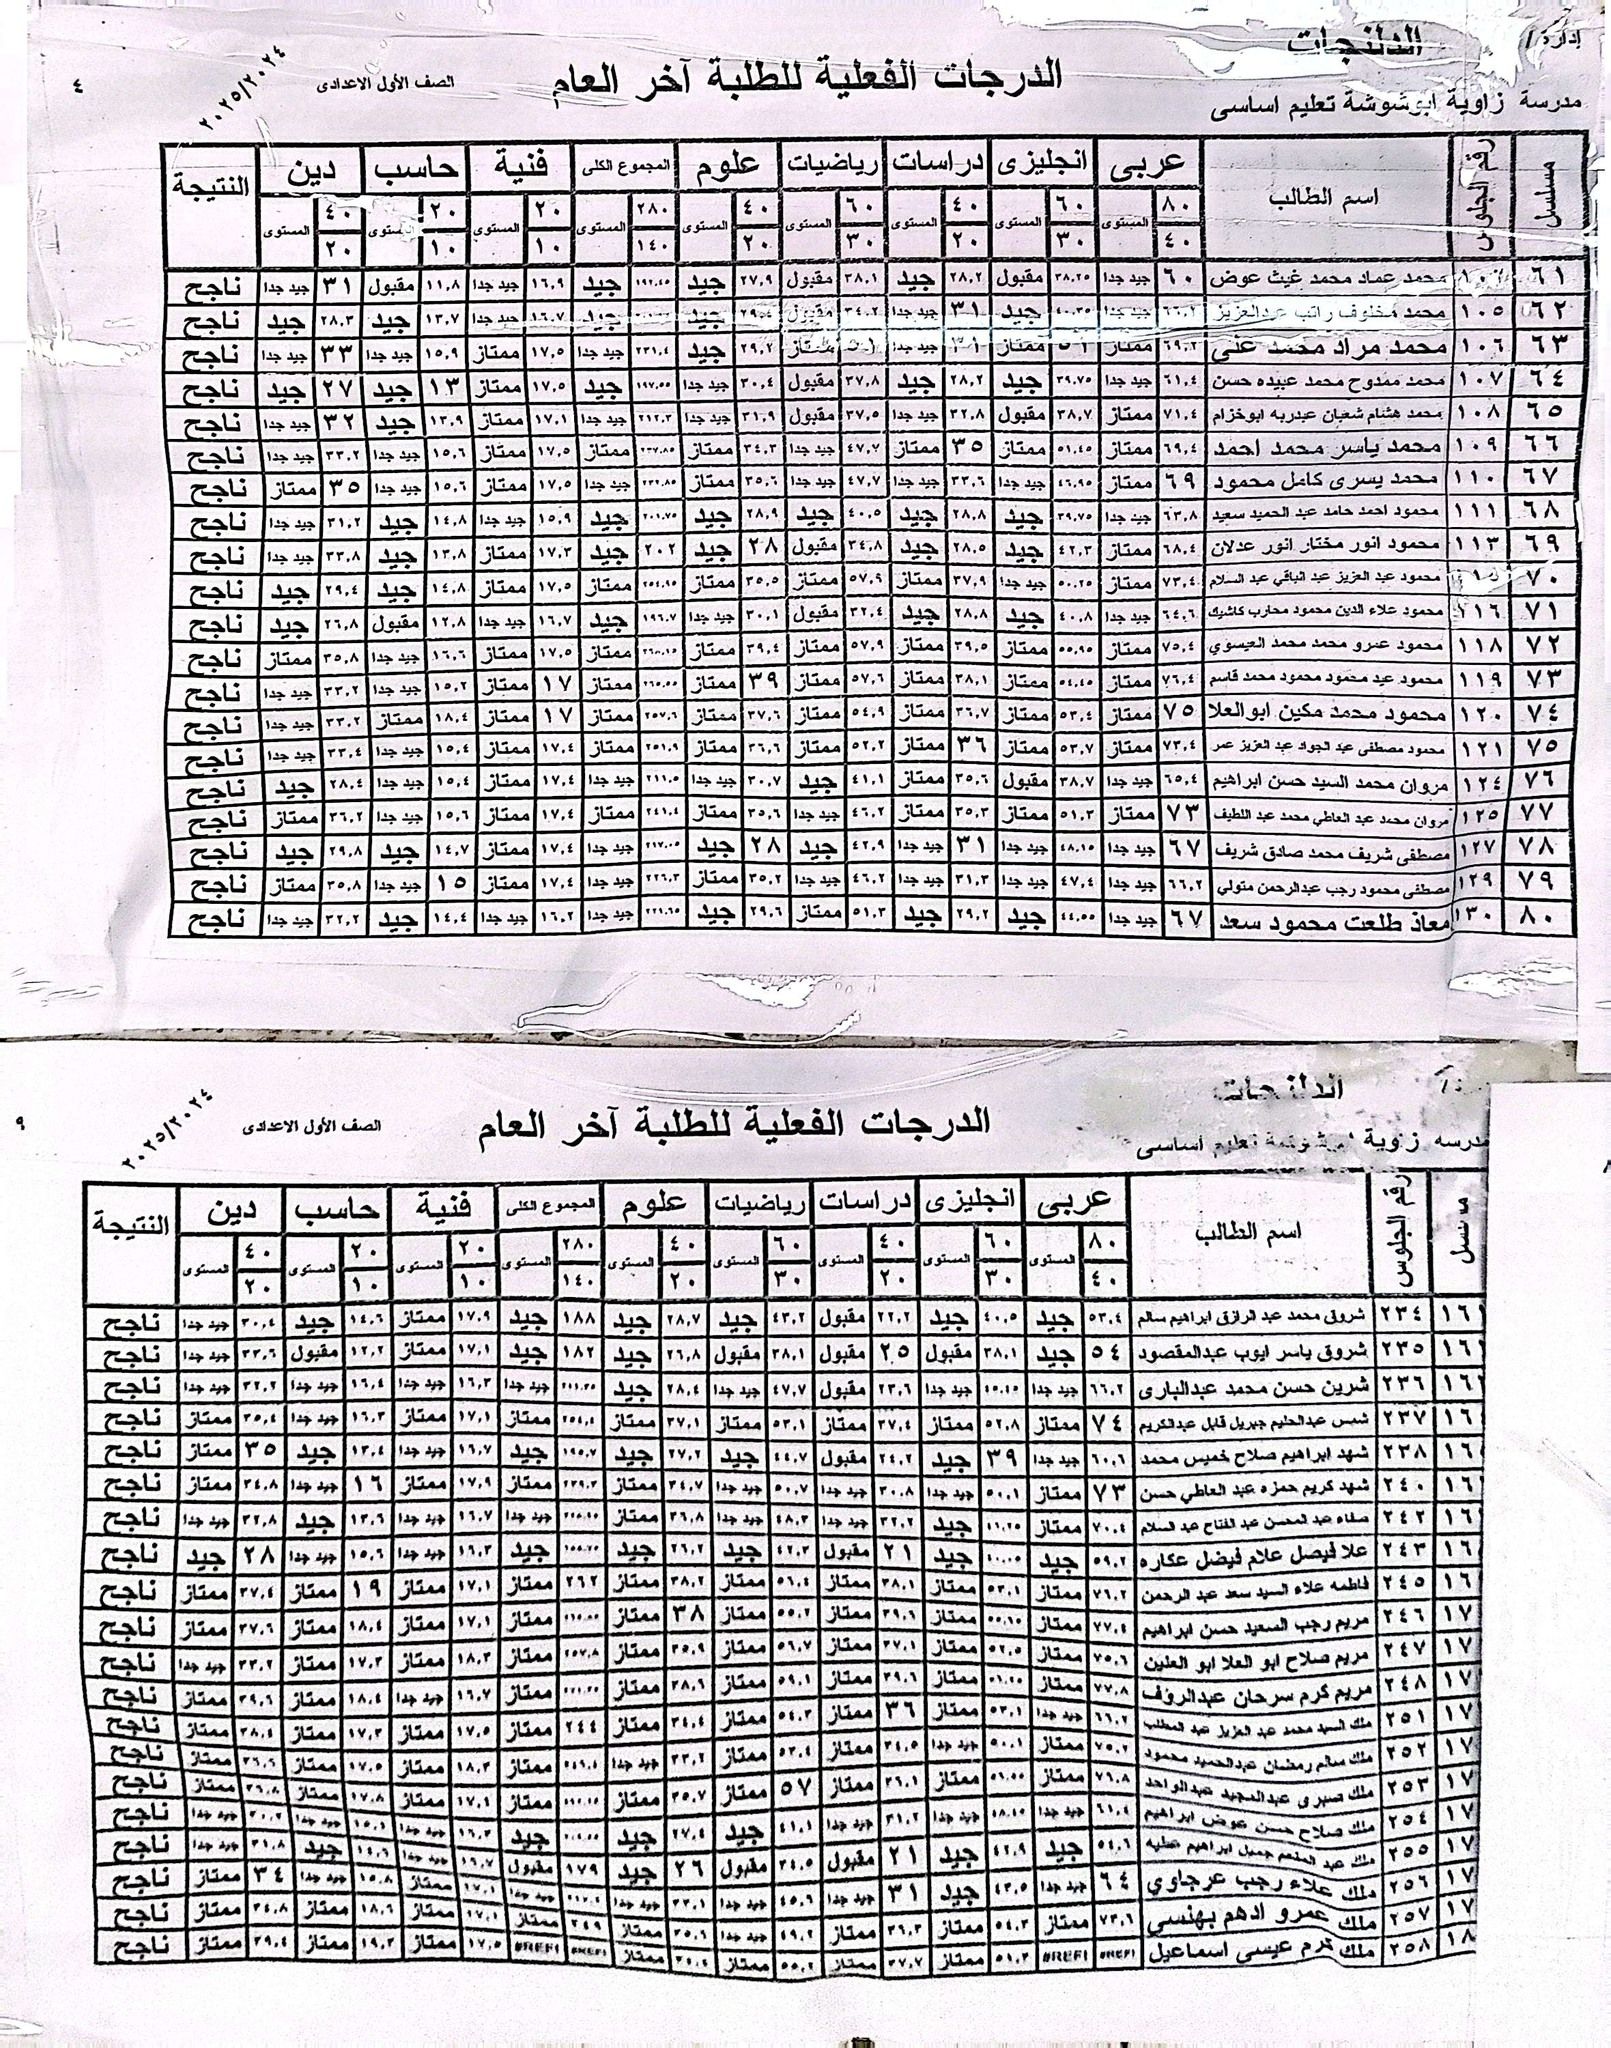 إدارة / الدلنجات
مدرسة زاوية ابوشوشة تعليم اساسى
الدرجات الفعلية للطلبة آخر العام
الصف الأول الاعدادى
٢٠٢٥/٢٠٢٤
٤
مسلسل رقم الجلوس اسم الطالب عربى انجليزى دراسات رياضيات علوم المجموع الكلى فنية حاسب دين النتيجة
٨٠ المستوى ٦٠ المستوى ٤٠ المستوى ٦٠ المستوى ٤٠ المستوى ٢٨٠ المستوى ٢٠ المستوى ٢٠ المستوى ٤٠ المستوى
٤٠ ٣٠ ٢٠ ٣٠ ٢٠ ١٤٠ ١٠ ١٠ ٢٠
٦١ محمد عماد محمد غيث عوض ٦٠ جيد جدا ٣٨.٢٥ مقبول ٢٨.٢ جيد ٣٨.١ مقبول ٢٧.٩ جيد ١٩٢.٤٥ جيد ١٦.٩ جيد جدا ١١.٨ مقبول ٣١ جيد جدا ناجح
٦٢ ١٠٥ محمد مخلوف راتب عبدالعزيز ٦٦.٢ جيد جدا ٤٠.٣٥ جيد ٣١ جيد جدا ٣٤.٢ مقبول جيد جيد ١٦.٧ جيد جدا ١٣.٧ جيد ٢٨.٣ جيد ناجح
٦٣ ١٠٦ محمد مراد محمد على ٦٩.٢ ممتاز ٥١ ممتاز ٣١ جيد جدا ٥١ ممتاز ٢٩.٢ جيد ٢٣١.٤ جيد جدا ١٧.٥ ممتاز ١٥.٩ جيد جدا ٣٣ جيد جدا ناجح
٦٤ ١٠٧ محمد ممدوح محمد عبيده حسن ٦١.٤ جيد جدا ٣٩.٧٥ جيد ٢٨.٢ جيد ٣٧.٨ مقبول ٣٠.٤ جيد جدا ١٩٧.٥٥ جيد ١٧.٥ ممتاز ١٣ جيد ٢٧ جيد ناجح
٦٥ ١٠٨ محمد هشام شعبان عبدربه ابوخزام ٧١.٤ ممتاز ٣٨.٧ مقبول ٣٢.٨ جيد جدا ٣٧.٥ مقبول ٣١.٩ جيد جدا ٢١٢.٣ جيد جدا ١٧.١ ممتاز ١٣.٩ جيد ٣٢ جيد جدا ناجح
٦٦ ١٠٩ محمد ياسر محمد احمد ٦٩.٤ ممتاز ٥١.٤٥ ممتاز ٣٥ ممتاز ٤٧.٧ جيد جدا ٣٤.٣ ممتاز ٢٣٧.٨٥ ممتاز ١٧.٥ ممتاز ١٥.٦ جيد جدا ٣٣.٢ جيد جدا ناجح
٦٧ ١١٠ محمد يسرى كامل محمود ٦٩ ممتاز ٤٦.٩٥ جيد جدا ٣٣.٦ جيد جدا ٤٧.٧ جيد جدا ٣٥.٦ ممتاز ٢٣٢.٨٥ جيد جدا ١٧.٥ ممتاز ١٥.٦ جيد جدا ٣٥ ممتاز ناجح
٦٨ ١١١ محمود احمد حامد عبد الحميد سعيد ٦٣.٨ جيد جدا ٣٩.٧٥ جيد ٢٨.٨ جيد ٤٠.٥ جيد ٢٨.٩ جيد ٢٠١.٧٥ جيد ١٥.٩ جيد جدا ١٤.٨ جيد ٣١.٢ جيد جدا ناجح
٦٩ ١١٣ محمود انور مختار انور عدلان ٦٨.٤ ممتاز ٤٢.٣ جيد ٢٨.٥ جيد ٣٤.٨ مقبول ٢٨ جيد ٢٠٢ جيد ١٧.٣ ممتاز ١٣.٨ جيد ٣٣.٨ جيد جدا ناجح
٧٠ محمود عبد العزيز عبد الباقي عبد السلام ٧٣.٤ ممتاز ٥٠.٢٥ جيد جدا ٣٧.٩ ممتاز ٥٧.٩ ممتاز ٣٥.٥ ممتاز ٢٥٤.٩٥ ممتاز ١٧.٥ ممتاز ١٤.٨ جيد ٢٩.٤ جيد ناجح
٧١ ١١٦ محمود علاء الدين محمود محارب كاشيك ٦٤.٦ جيد جدا ٤٠.٨ جيد ٢٨.٨ جيد ٣٢.٤ مقبول ٣٠.١ جيد جدا ١٩٦.٧ جيد ١٦.٧ جيد جدا ١٢.٨ مقبول ٢٦.٨ جيد ناجح
٧٢ ١١٨ محمود عمرو محمد محمد العيسوي ٧٥.٤ ممتاز ٥٥.٩٥ ممتاز ٣٩.٥ ممتاز ٥٧.٩ ممتاز ٣٩.٤ ممتاز ممتاز ١٧.٥ ممتاز ١٦.٦ جيد جدا ٣٥.٨ ممتاز ناجح
٧٣ ١١٩ محمود عيد محمود محمود محمد قاسم ٧٦.٤ ممتاز ٥٤.٤٥ ممتاز ٣٨.١ ممتاز ٥٧.٦ ممتاز ٣٩ ممتاز ٢٦٥.٥٥ ممتاز ١٧ ممتاز ١٥.٢ جيد جدا ٣٣.٢ جيد جدا ناجح
٧٤ ١٢٠ محمود محمد مكين ابوالعلا ٧٥ ممتاز ٥٣.٤ ممتاز ٣٦.٧ ممتاز ٥٤.٩ ممتاز ٣٧.٦ ممتاز ٢٥٧.٦ ممتاز ١٧ ممتاز ١٨.٤ ممتاز ٣٣.٢ جيد جدا ناجح
٧٥ ١٢١ محمود مصطفى عبد الجواد عبد العزيز عمر ٧٣.٤ ممتاز ٥٣.٧ ممتاز ٣٦ ممتاز ٥٢.٢ ممتاز ٣٦.٦ ممتاز ٢٥١.٩ ممتاز ١٧.٤ ممتاز ١٥.٤ جيد جدا ٣٣.٤ جيد جدا ناجح
٧٦ ١٢٤ مروان محمد السيد حسن ابراهيم ٦٥.٤ جيد جدا ٣٨.٧ مقبول ٣٥.٦ ممتاز ٤١.١ جيد ٣٠.٧ جيد جدا ٢١١.٥ جيد جدا ١٧.٤ ممتاز ١٥.٤ جيد جدا ٢٨.٤ جيد ناجح
٧٧ ١٢٥ مروان محمد عبد العاطي محمد عبد اللطيف ٧٣ ممتاز ٥١.٣ ممتاز ٣٥.٣ ممتاز ٤٦.٢ جيد جدا ٣٥.٦ ممتاز ٢٤١.٤ ممتاز ١٧.٤ ممتاز ١٥.٦ جيد جدا ٣٦.٢ ممتاز ناجح
٧٨ ١٢٧ مصطفى شريف محمد صادق شريف ٦٧ جيد جدا ٤٨.١٥ جيد جدا ٣١ جيد جدا ٤٢.٩ جيد ٢٨ جيد ٢١٧.٠٥ جيد جدا ١٧.٤ ممتاز ١٤.٧ جيد ٢٩.٨ جيد ناجح
٧٩ ١٢٩ مصطفى محمود رجب عبدالرحمن متولي ٦٦.٢ جيد جدا ٤٧.٤ جيد جدا ٣١.٣ جيد جدا ٤٦.٢ جيد جدا ٣٥.٢ ممتاز ٢٢٦.٣ جيد جدا ١٧.٤ ممتاز ١٥ جيد جدا ٣٥.٨ ممتاز ناجح
٨٠ ١٣٠ معاذ طلعت محمود سعد ٦٧ جيد جدا ٤٤.٥٥ جيد ٢٩.٢ جيد ٥١.٣ ممتاز ٢٩.٦ جيد ٢٢١.٦٥ جيد جدا ١٦.٢ جيد جدا ١٤.٤ جيد ٣٢.٢ جيد جدا ناجح
الدلنجات
مدرسه زاوية تعليم اساسى
الدرجات الفعلية للطلبة آخر العام
الصف الأول الاعدادى
٢٠٢٥/٢٠٢٤
٩
مسلسل رقم الجلوس اسم الطالب عربى انجليزى دراسات رياضيات علوم المجموع الكلى فنية حاسب دين النتيجة
٨٠ المستوى ٦٠ المستوى ٤٠ المستوى ٦٠ المستوى ٤٠ المستوى ٢٨٠ المستوى ٢٠ المستوى ٢٠ المستوى ٤٠ المستوى
٤٠ ٣٠ ٢٠ ٣٠ ٢٠ ١٤٠ ١٠ ١٠ ٢٠
١٦١ ٢٣٤ شروق محمد عبد الرازق ابراهيم سالم ٥٣.٤ جيد ٤٠.٥ جيد ٢٢.٢ مقبول ٤٣.٢ جيد ٢٨.٧ جيد ١٨٨ جيد ١٧.٩ ممتاز ١٤.٦ جيد ٣٠.٤ جيد جدا ناجح
١٦ ٢٣٥ شروق ياسر ايوب عبدالمقصود ٥٤ جيد ٣٨.١ مقبول ٢٥ مقبول ٣٨.١ مقبول ٢٦.٨ جيد ١٨٢ جيد ١٧.١ ممتاز ١٢.٢ مقبول ٣٣.٦ جيد جدا ناجح
١٦ ٢٣٦ شرين حسن محمد عبدالبارى ٦٦.٢ جيد جدا ٤٥.٤٥ جيد جدا ٢٣.٦ مقبول ٤٧.٧ جيد جدا ٢٨.٤ جيد جيد جدا ١٦.٣ جيد جدا ١٦.٤ جيد جدا ٣٢.٢ جيد جدا ناجح
١٦ ٢٣٧ شمس عبدالحليم جبريل قابل عبدالكريم ٧٤ ممتاز ٥٢.٨ ممتاز ٣٧.٤ ممتاز ٥٣.١ ممتاز ٣٧.١ ممتاز ٢٥٤.٤ ممتاز ١٧.١ ممتاز ١٦.٣ جيد جدا ٣٥.٤ ممتاز ناجح
١٦ ٢٣٨ شهد ابراهيم صلاح خميس محمد ٦٠.٦ جيد جدا ٣٩ جيد ٢٤.٢ مقبول ٤٤.٧ جيد ٢٧.٢ جيد ١٩٥.٧ جيد ١٦.٧ جيد جدا ١٣.٤ جيد ٣٥ ممتاز ناجح
١٦ ٢٤٠ شهد كريم حمزه عبد العاطي حسن ٧٣ ممتاز ٥٠.١ جيد جدا ٣٠.٨ جيد جدا ٥٠.٧ جيد جدا ٣٤.٧ ممتاز ٢٣٩.٣ ممتاز ١٧.٩ ممتاز ١٦ جيد جدا ٣٤.٨ ممتاز ناجح
١٦ ٢٤٢ صفاء عبد المحسن عبد الفتاح عبد السلام ٧٠.٤ ممتاز جيد ٣٢.٢ جيد جدا ٤٨.٣ جيد جدا ٣٦.٨ ممتاز جيد جدا ١٦.٧ جيد جدا ١٣.٦ جيد ٣٢.٨ جيد جدا ناجح
١٦ ٢٤٣ علا فيصل علام فيضل عكاره ٥٩.٢ جيد جيد ٢١ مقبول ٤٢.٣ جيد ٢٦.٢ جيد جيد ١٦.٣ جيد جدا ١٥.٦ جيد جدا ٢٨ جيد ناجح
١٦ ٢٤٥ فاطمه علاء السيد سعد عبد الرحمن ٧٦.٢ ممتاز ٥٣.١ ممتاز ٣٨.١ ممتاز ٥٦.٤ ممتاز ٣٨.٢ ممتاز ٢٦٢ ممتاز ١٧.١ ممتاز ١٩ ممتاز ٣٧.٤ ممتاز ناجح
١٧ ٢٤٦ مريم رجب السعيد حسن ابراهيم ٧٧.٤ ممتاز ممتاز ٣٩.٦ ممتاز ٥٥.٢ ممتاز ٣٨ ممتاز ممتاز ١٧.١ ممتاز ١٨.٤ ممتاز ٣٧.٦ ممتاز ناجح
١٧ ٢٤٧ مريم صلاح ابو العلا ابو العنين ٧٥.٦ ممتاز ٥٢.٥ ممتاز ٣٧.١ ممتاز ٥٦.٧ ممتاز ٣٥.٩ ممتاز ٢٥٧.٨ ممتاز ١٨.٣ ممتاز ١٧.٣ ممتاز ٣٣.٢ جيد جدا ناجح
١٧ ٢٤٨ مريم كرم سرحان عبدالروف ٧٧.٨ ممتاز ممتاز ٣٩.٦ ممتاز ٥٩.١ ممتاز ٣٨.٦ ممتاز ممتاز ١٦.٧ جيد جدا ١٨.٤ ممتاز ٣٩.٦ ممتاز ناجح
١٧ ٢٥١ ملك السيد محمد عبد العزيز عبد المطلب ٦٦.٢ جيد جدا ٥٣.١ ممتاز ٣٦ ممتاز ٥٤.٣ ممتاز ٣٤.٤ ممتاز ٢٤٤ ممتاز ١٧.٥ ممتاز ١٧.٣ ممتاز ٣٨.٤ ممتاز ناجح
١٧ ٢٥٢ ملك سالم رمضان عبدالحميد محمود ٧٥.٢ ممتاز ٥٠.١ جيد جدا ٣٤.٥ ممتاز ٥٣.٤ ممتاز ٣٣.٢ جيد جدا ممتاز ١٨.٣ ممتاز ١٧.٥ ممتاز ٣٦.٦ ممتاز ناجح
١٧ ٢٥٣ ملك صبرى عبدالمجيد عبدالواحد ٧٦.٨ ممتاز ممتاز ٣٦.١ ممتاز ٥٧ ممتاز ٣٥.٧ ممتاز ممتاز ١٧.١ ممتاز ١٧.٨ ممتاز ٣٦.٨ ممتاز ناجح
١٧ ٢٥٤ ملك صلاح حسن عوض ابراهيم ٦١.٤ جيد جدا جيد جدا ٣١.٢ جيد جدا ٤١.١ جيد ٢٧.٤ جيد جيد ١٦.٣ جيد جدا ١٥.١ جيد جدا ٣٠.٢ جيد جدا ناجح
١٧ ٢٥٥ ملك عبد المنعم جميل ابراهيم عطيه ٥٤.٦ جيد ٤٢.٩ جيد ٢١ مقبول ٣٤.٥ مقبول ٢٦ جيد ١٧٩ مقبول ١٦.٧ جيد جدا ١٤.٦ جيد ٣١.٨ جيد جدا ناجح
١٧ ٢٥٦ ملك علاء رجب عرجاوي ٦٤ جيد جدا ٤٣.٥ جيد ٣١ جيد جدا ٤٥.٦ جيد جدا ٣٣.١ جيد جدا جيد جدا ١٧.١ ممتاز ١٥.٨ جيد جدا ٣٤ ممتاز ناجح
١٧ ٢٥٧ ملك عمرو ادهم بهنسي ٧٣.٦ ممتاز ٥٤.٣ ممتاز ٣٦.٣ ممتاز ٤٩.٢ جيد جدا ٣٥.٦ ممتاز ٢٤٩ ممتاز ١٧.١ ممتاز ١٨.٦ ممتاز ٣٤.٨ ممتاز ناجح
١٨ ٢٥٨ ملك كرم عيسى اسماعيل #REF! #REF! ٥١.٣ ممتاز ٣٧.٧ ممتاز ٥٥.٢ ممتاز ممتاز #REF! #REF! ١٧.٥ ممتاز ١٩.٣ ممتاز ٣٩.٤ ممتاز ناجح